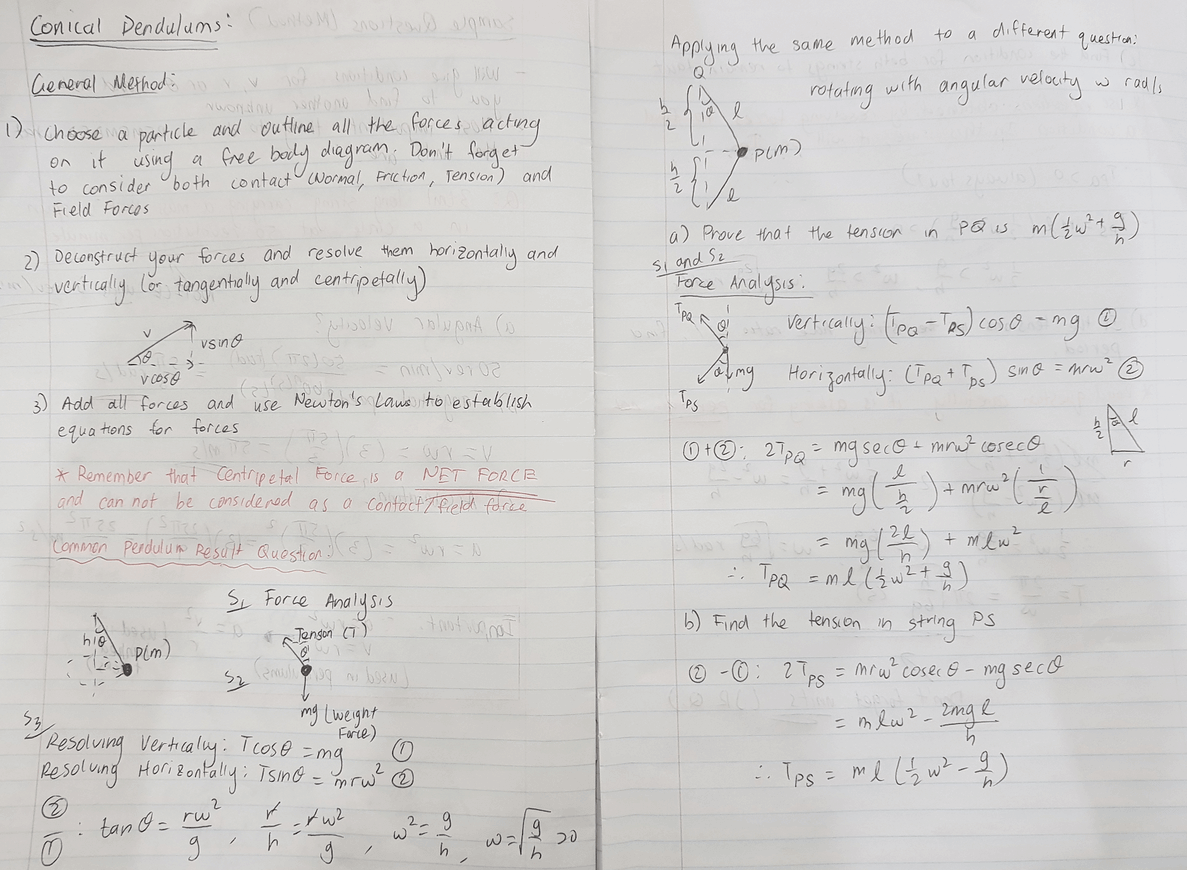 Conical Pendulums:
General Method:
1) Choose a particle and outline all the forces acting
on it using a free body diagram. Don't forget
to consider both contact (Normal, Friction, Tension) and
Field Forces
2) Deconstruct your forces and resolve them horizontally and
vertically (or tangentially and centripetally)
v
vsinθ
θ
vcosθ
3) Add all forces and use Newton's Laws to establish
equations for forces
* Remember that Centripetal Force is a NET FORCE
and can not be considered as a contact/field force
Common Pendulum Result Question:
S1 Force Analysis
h θ
P(m)
S2
Tenson (T)
θ
mg (weight
Force)
S3
Resolving Vertically: Tcosθ = mg ①
Resolving Horizontally: Tsinθ = mrω² ②
②/① : tanθ = rω²/g , r/h = rω²/g , ω² = g/h , ω = √(g/h) >0
Applying the same method to a different question:
rotating with angular velocity ω rad/s
Q
h/2
θ
l
P(m)
h/2
l
a) Prove that the tension in PQ is m(½ω² + g/h)
S1 and S2
Force Analysis:
T_PQ
θ
θ
mg
T_PS
Vertically: (T_PQ - T_PS) cosθ = mg ①
Horizontally: (T_PQ + T_PS) sinθ = mrω² ②
h/2
θ
l
r
①+②: 2T_PQ = mg secθ + mrω² cosecθ
= mg(l/(h/2)) + mrω²(1/(r/l))
= mg(2l/h) + mlω²
∴ T_PQ = ml(½ω² + g/h)
b) Find the tension in string PS
② - ①: 2T_PS = mrω² cosecθ - mg secθ
= mlω² - 2mgl/h
∴ T_PS = ml(½ω² - g/h)